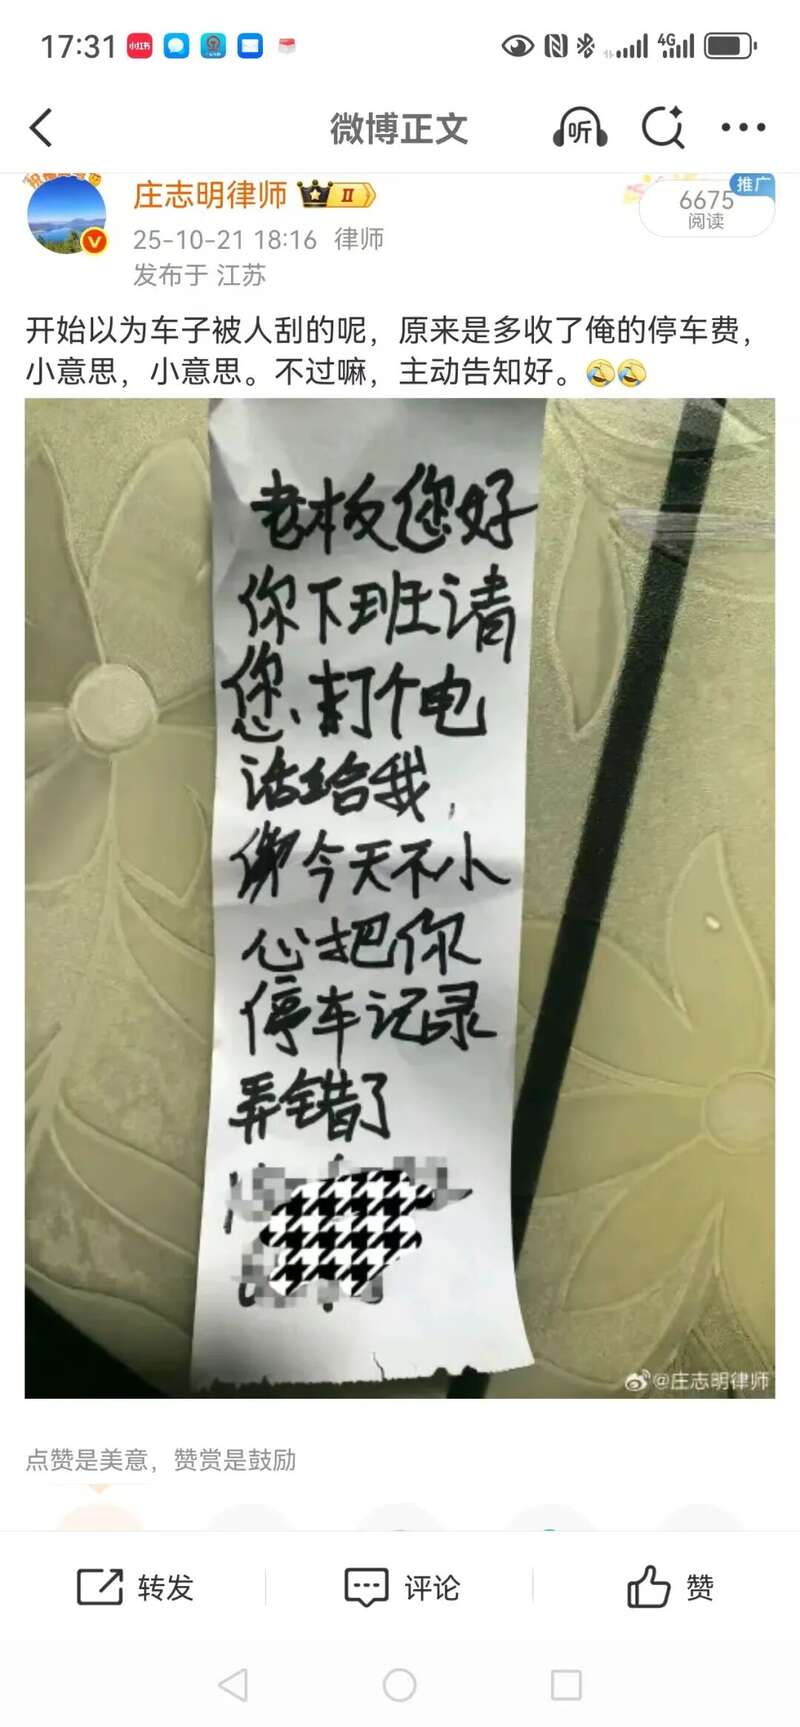 17:31
小红书
4G
微博正文
听
庄志明律师
II
推广
6675
阅读
25-10-21 18:16 律师
发布于 江苏
开始以为车子被人刮的呢，原来是多收了俺的停车费，
小意思，小意思。不过嘛，主动告知好。🤣🤣
老板您好
你下班请
您打个电
话给我，
今天不小
心把你
停车记录
弄错了
@庄志明律师
点赞是美意，赞赏是鼓励
转发
评论
赞